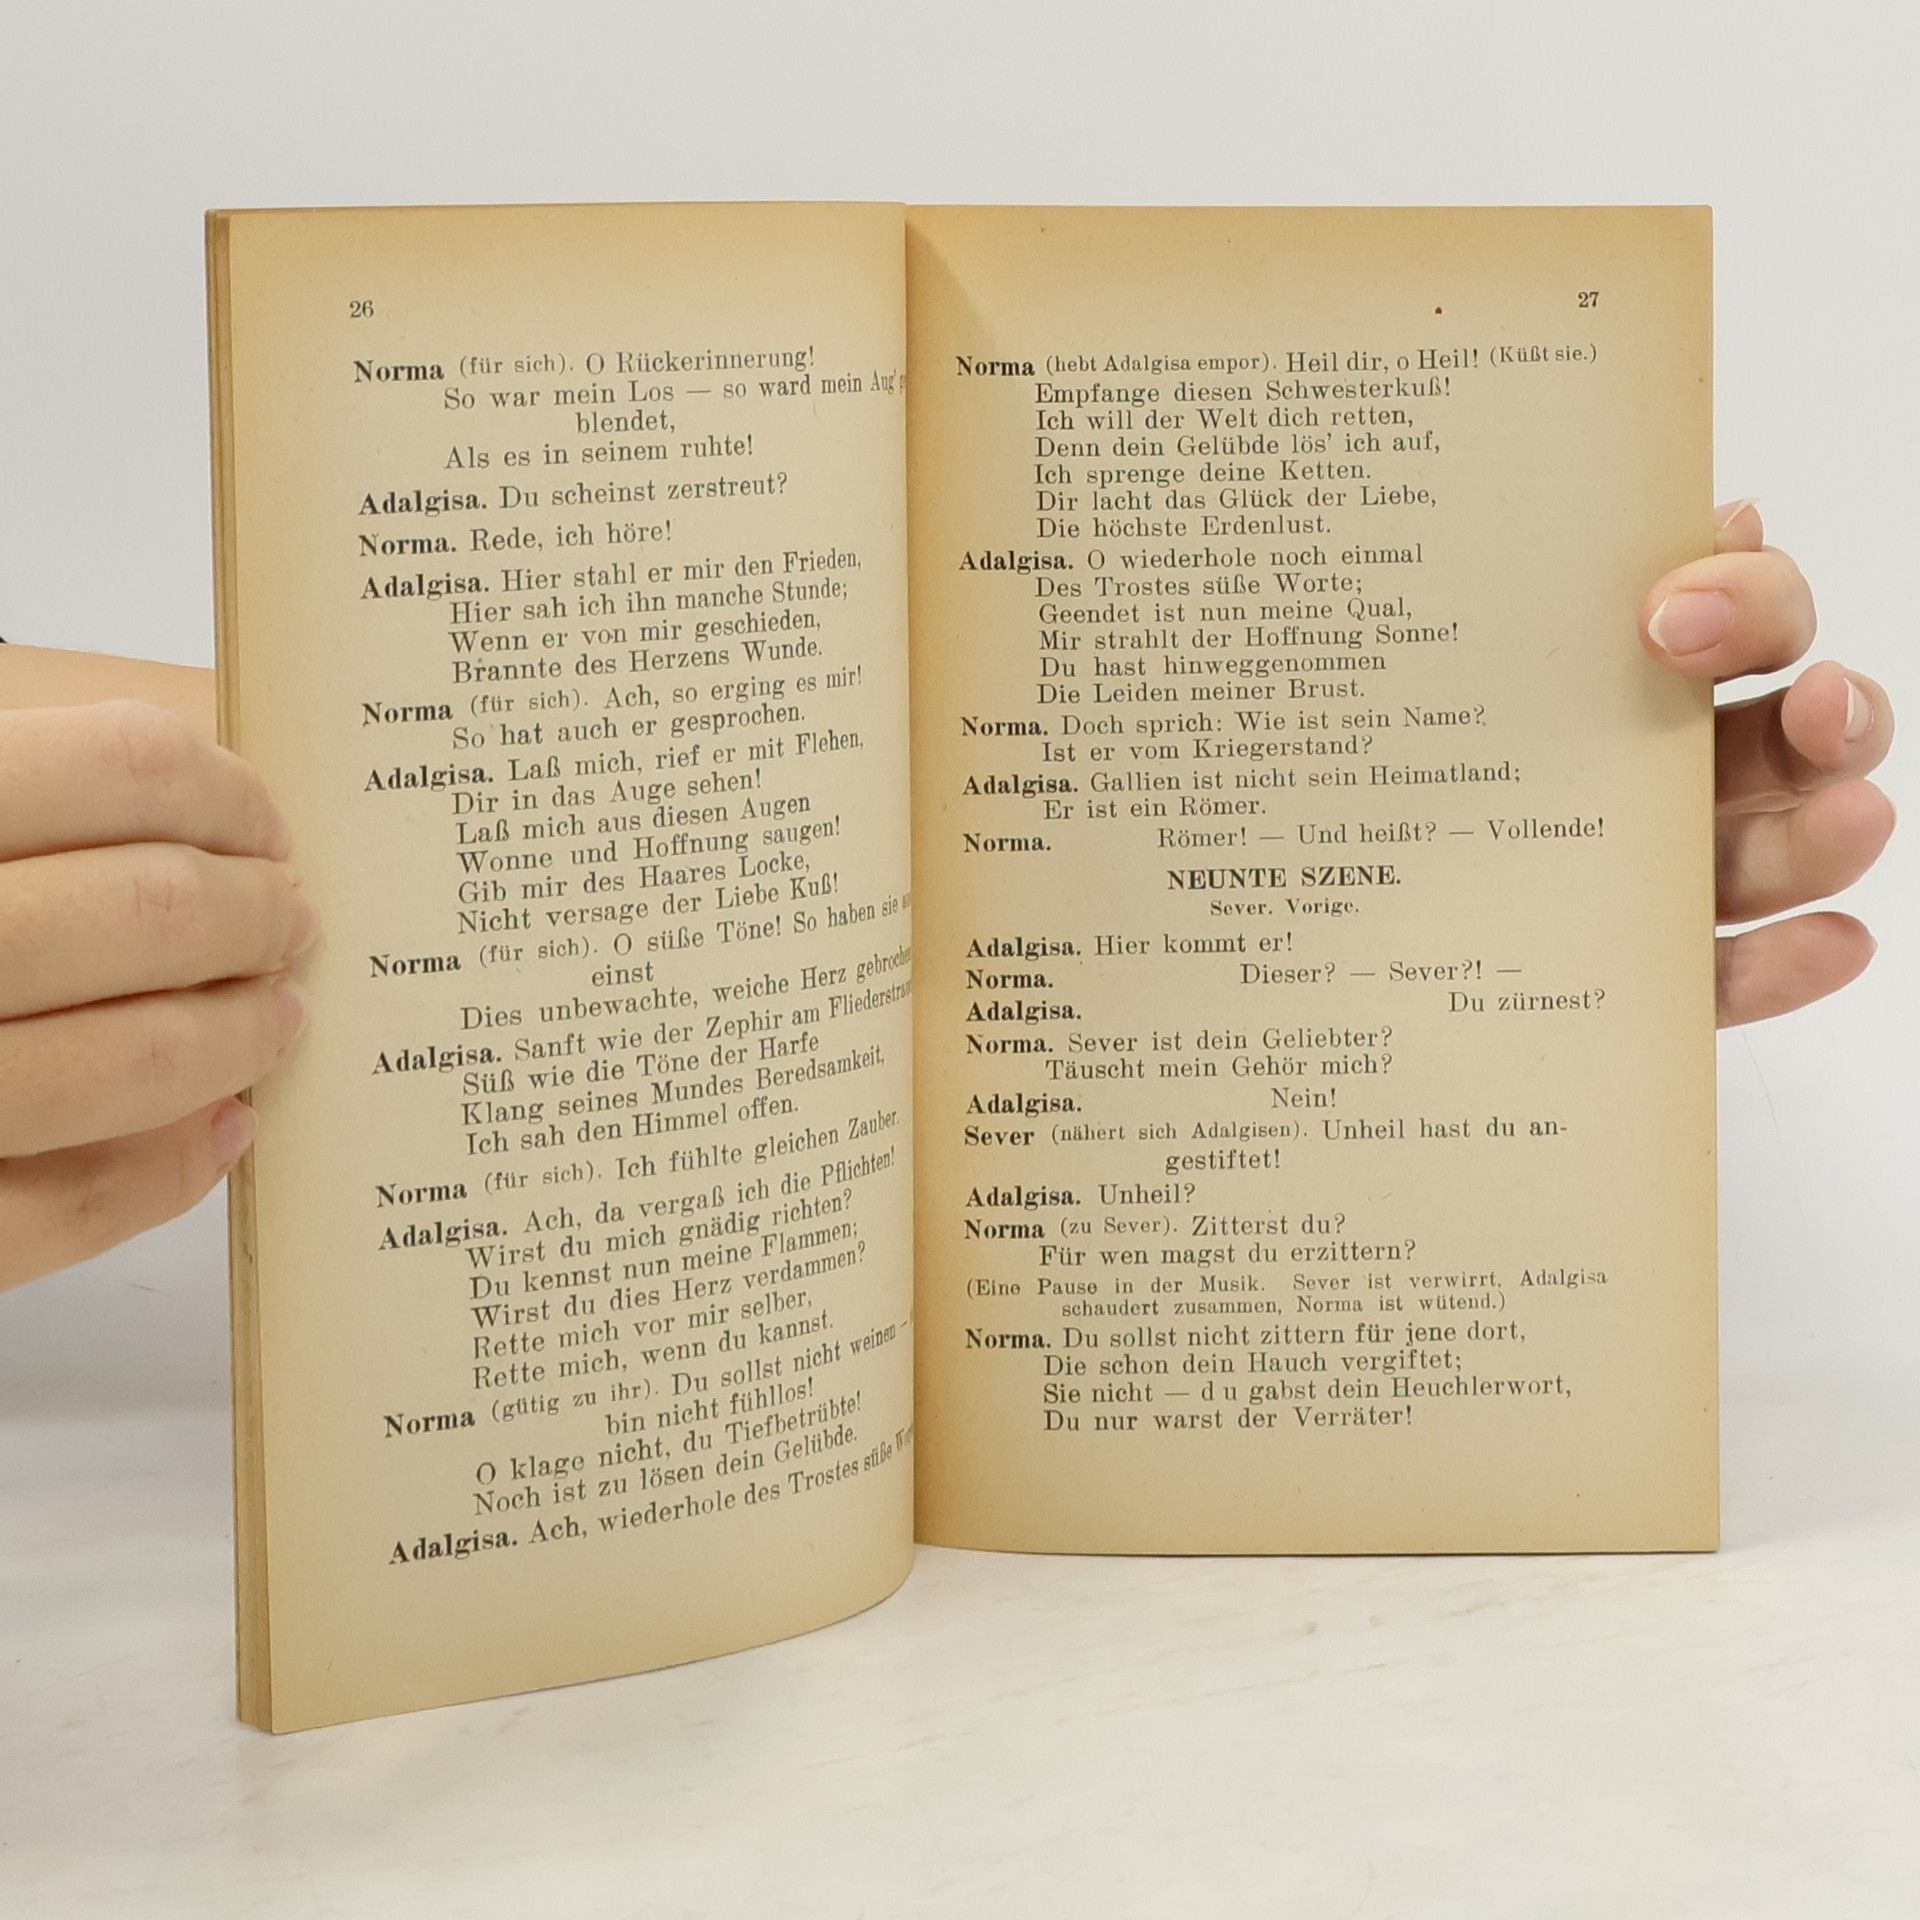 26
Norma (für sich). O Rückerinnerung!
So war mein Los — so ward mein Aug'
blendet,
Als es in seinem ruhte!
Adalgisa. Du scheinst zerstreut?
Norma. Rede, ich höre!
Adalgisa. Hier stahl er mir den Frieden,
Hier sah ich ihn manche Stunde;
Wenn er von mir geschieden,
Brannte des Herzens Wunde.
Norma (für sich). Ach, so erging es mir!
So hat auch er gesprochen.
Adalgisa. Laß mich, rief er mit Flehen,
Dir in das Auge sehen!
Laß mich aus diesen Augen
Wonne und Hoffnung saugen!
Gib mir des Haares Locke,
Nicht versage der Liebe Kuß!
Norma (für sich). O süße Töne! So haben sie
einst
Dies unbewachte, weiche Herz gebrochen
Adalgisa. Sanft wie der Zephir am
Süß wie die Töne der Harfe
Klang seines Mundes Beredsamkeit,
Ich sah den Himmel offen.
Norma (für sich). Ich fühlte gleichen Zauber.
Adalgisa. Ach, da vergaß ich die Pflichten!
Wirst du mich gnädig richten?
Du kennst nun meine Flammen;
Wirst du dies Herz verdammen?
Rette mich vor mir selber,
Rette mich, wenn du kannst.
Norma (gütig zu ihr). Du sollst nicht weinen —
bin nicht fühllos!
O klage nicht, du Tiefbetrübte!
Noch ist zu lösen dein Gelübde.
Adalgisa. Ach, wiederhole des Trostes süße
27
Norma (hebt Adalgisa empor). Heil dir, o Heil! (Küßt sie.)
Empfange diesen Schwesterkuß!
Ich will der Welt dich retten,
Denn dein Gelübde lös' ich auf,
Ich sprenge deine Ketten.
Dir lacht das Glück der Liebe,
Die höchste Erdenlust.
Adalgisa. O wiederhole noch einmal
Des Trostes süße Worte;
Geendet ist nun meine Qual,
Mir strahlt der Hoffnung Sonne!
Du hast hinweggenommen
Die Leiden meiner Brust.
Norma. Doch sprich: Wie ist sein Name?
Ist er vom Kriegerstand?
Adalgisa. Gallien ist nicht sein Heimatland;
Er ist ein Römer.
Norma. Römer! — Und heißt? — Vollende!
NEUNTE SZENE.
Sever. Vorige.
Adalgisa. Hier kommt er!
Norma. Dieser? — Sever?! —
Adalgisa. Du zürnest?
Norma. Sever ist dein Geliebter?
Täuscht mein Gehör mich?
Adalgisa. Nein!
Sever (nähert sich Adalgisen). Unheil hast du an-
gestiftet!
Adalgisa. Unheil?
Norma (zu Sever). Zitterst du?
Für wen magst du erzittern?
(Eine Pause in der Musik. Sever ist verwirrt, Adalgisa
schaudert zusammen, Norma ist wütend.)
Norma. Du sollst nicht zittern für jene dort,
Die schon dein Hauch vergiftet;
Sie nicht — d u gabst dein Heuchlerwort,
Du nur warst der Verräter!